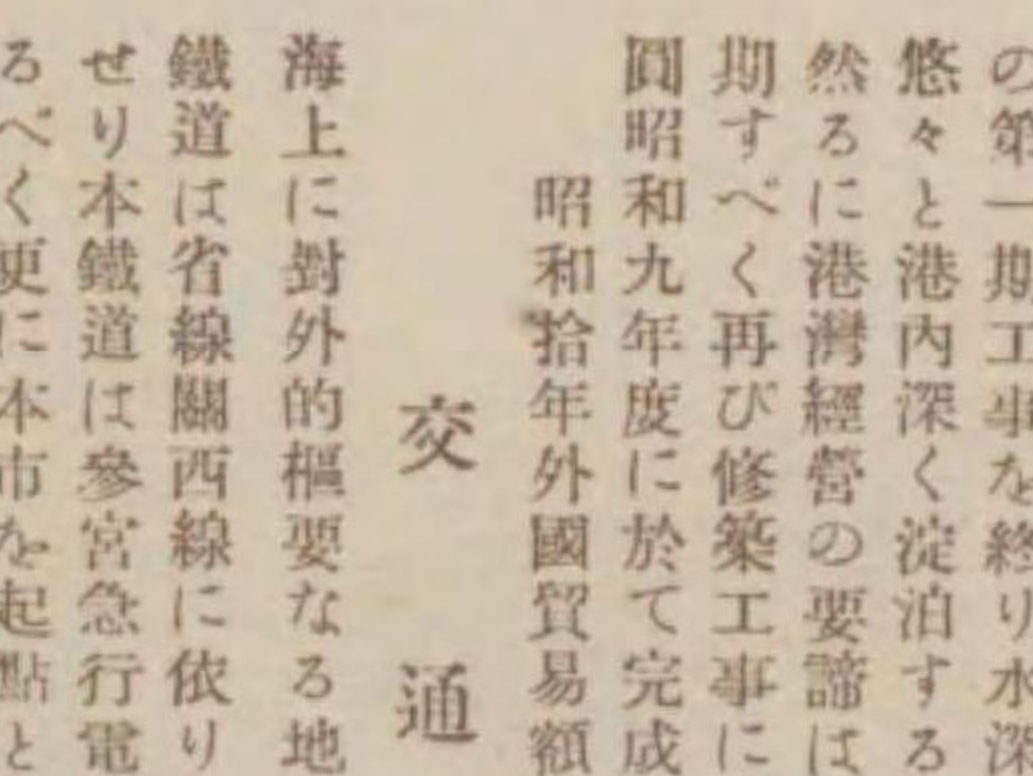 の第一期工事を終り水深
悠々と港內深く淀泊する
然るに港灣經營の要諦は
期すべく再び修築工事に
圓昭和九年度に於て完成
昭和拾年外國貿易額
交通
海上に對外的樞要なる地
鐵道は省線關西線に依り
せり本鐵道は參宮急行電
るべく更に本市を起點と